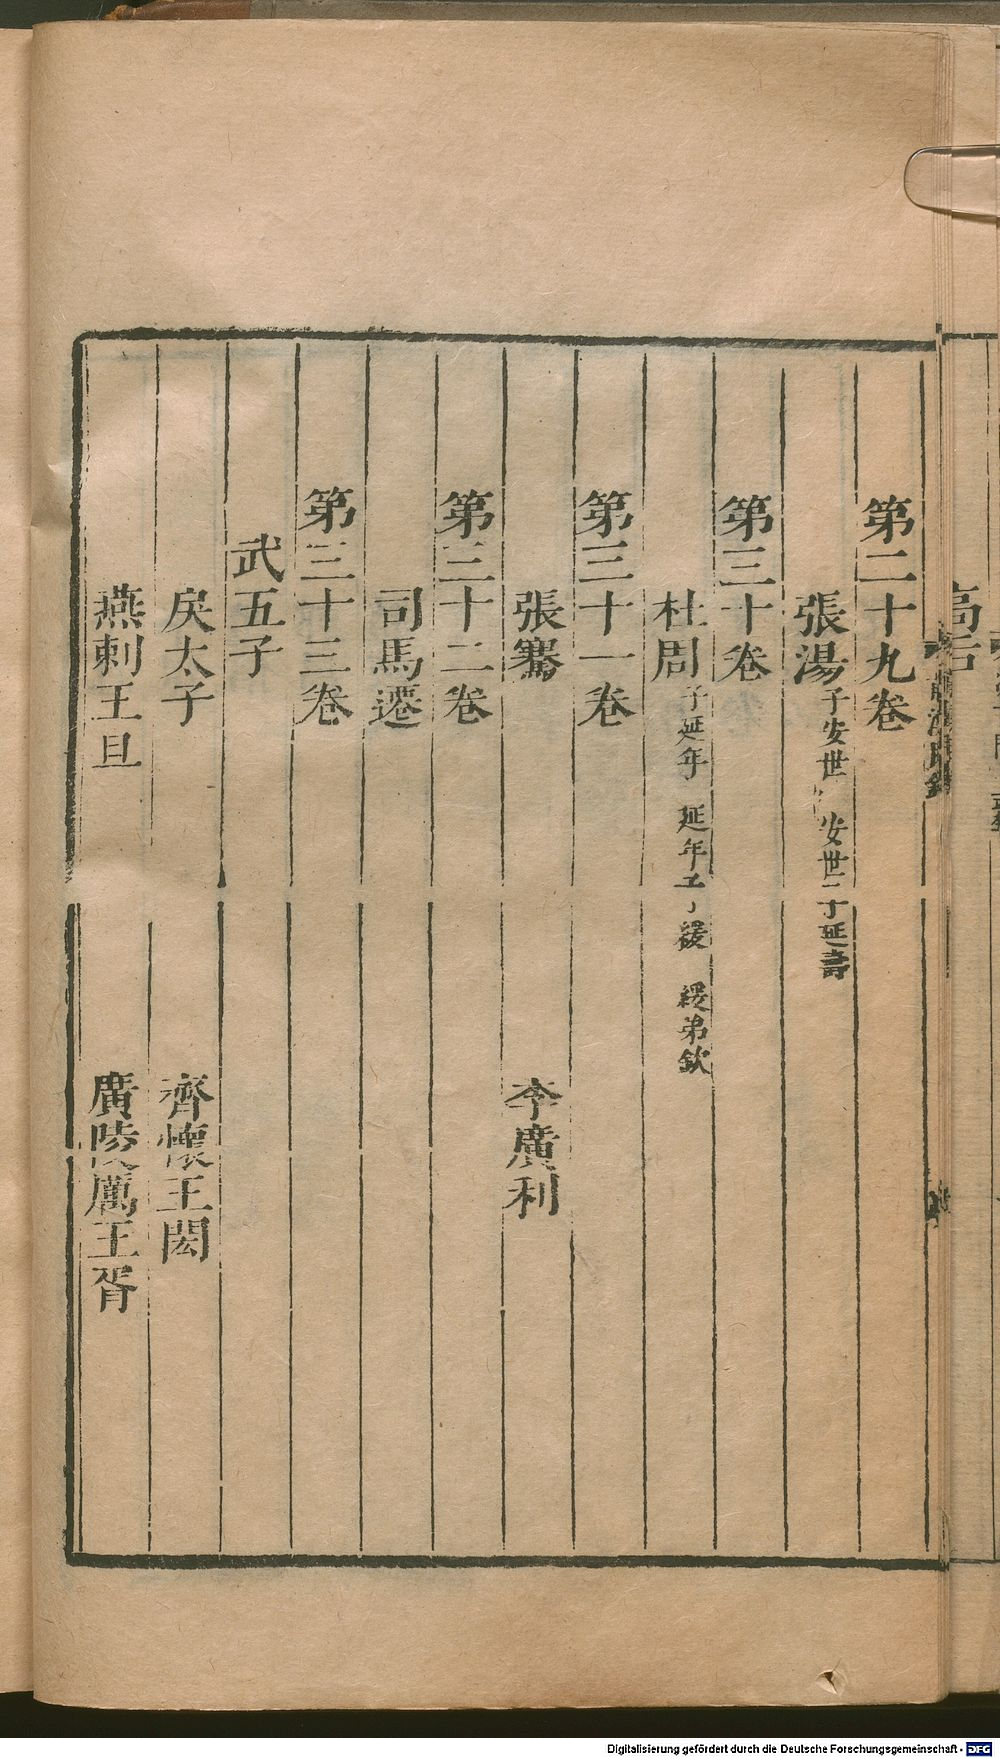 第二十九卷
張湯子安世 安世子延壽
第三十卷
杜周子延年 延年子緩 緩弟欽
第三十一卷
張騫 李廣利
第三十二卷
司馬遷
第三十三卷
武五子
戾太子 齊懷王閎
燕剌王旦 廣陵厲王胥
Digitalisierung gefördert durch die Deutsche Forschungsgemeinschaft - DFG